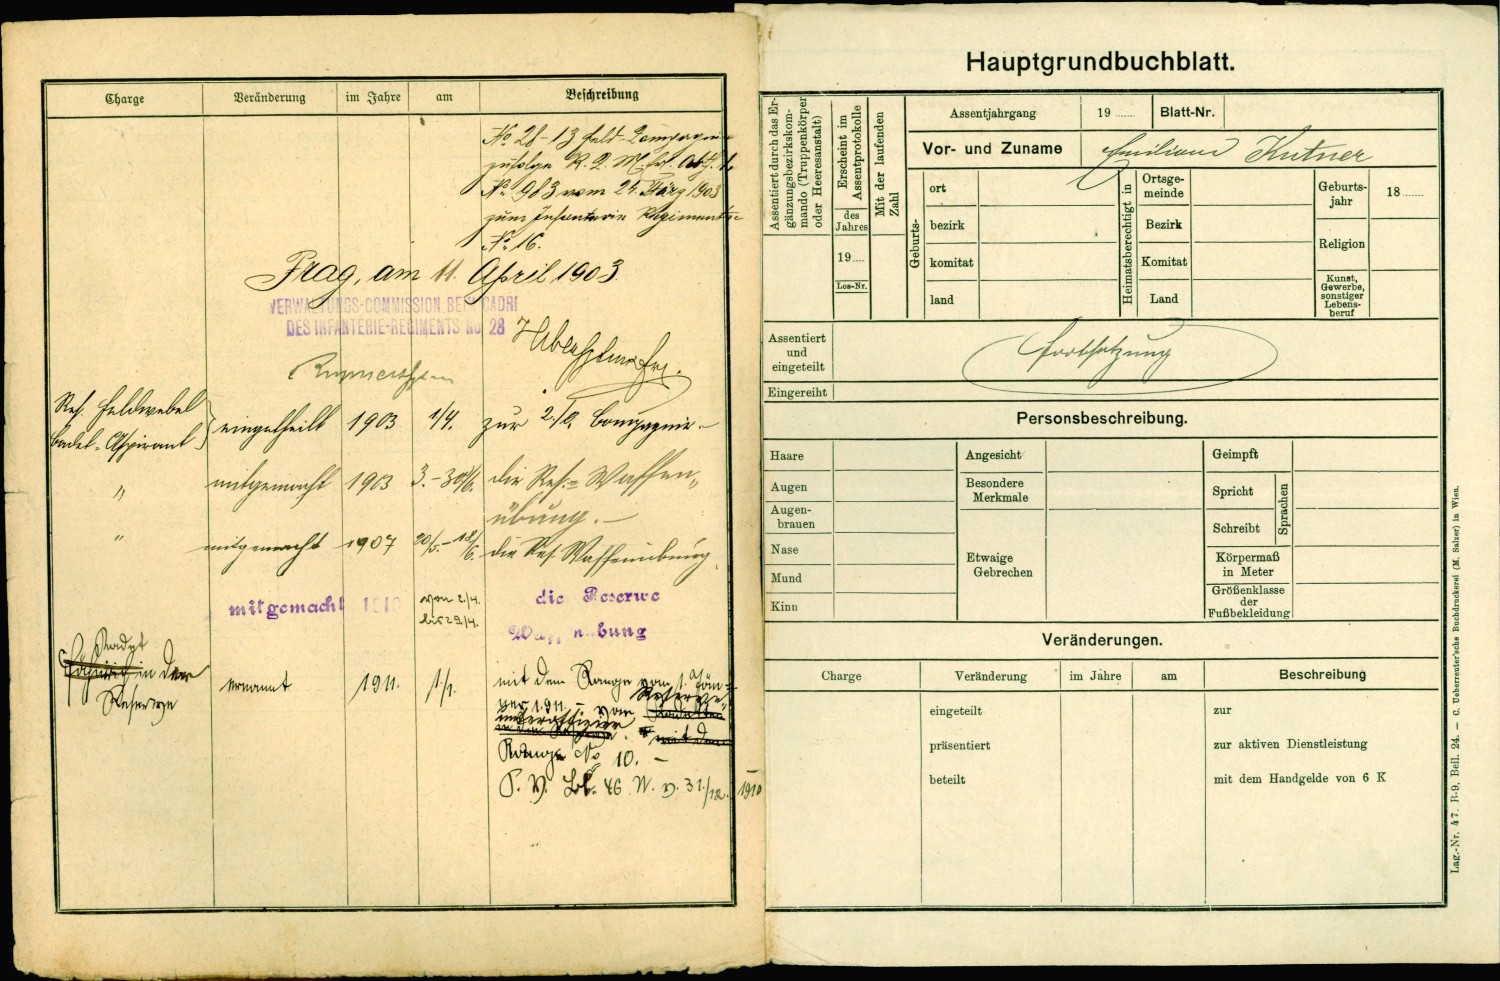 Charge Veränderung im Jahre am Beschreibung
No 28-13 Feld-Compagnie
zufolge K. Q. M. Abth. 1.
No 983 vom 24. März 1903
zum Infanterie Regimente
No 16.
Prag, am 11. April 1903
VERWALTUNGS-COMMISSION BEIM CADRE
DES INFANTERIE-REGIMENTS No 28
Res. Feldwebel
Cadet-Aspirant eingetheilt 1903 1/4. zur Compagnie
" mitgemacht 1903 3.-30/6. die Res.= Waffen„
übung.
" mitgemacht 1907 20/5.-18/6. die Res. Waffenübung
mitgemacht 1910 von 2./4.
bis 29/4. die Reserve
Waffenübung
Kadet
Fähnrich in der
Reserve ernannt 1911. 1/1. mit dem Range vom 1. Jän=
ner 1911. - vom Reserve„
unteroffizier
mit dem
Range No 10. -
P. V. Bl. 46 N. v. 31./12. 1910
Hauptgrundbuchblatt.
Assentiert durch das Er-
gänzungsbezirkskom-
mando (Truppenkörper
oder Heeresanstalt)
Erscheint im
Assentprotokolle
des
Jahres
19
Los-Nr.
Mit der laufenden
Zahl
Assentjahrgang 19 Blatt-Nr.
Vor- und Zuname Emilian Kutner
Geburts-
ort
bezirk
komitat
land
Heimatsberechtigt in
Ortsge-
meinde
Bezirk
Komitat
Land
Geburts-
jahr 18
Religion
Kunst,
Gewerbe,
sonstiger
Lebens-
beruf
Assentiert
und
eingeteilt
Fortsetzung
Eingereiht
Personsbeschreibung.
Haare
Augen
Augen-
brauen
Nase
Mund
Kinn
Angesicht
Besondere
Merkmale
Etwaige
Gebrechen
Geimpft
Spricht
Schreibt
Sprachen
Körpermaß
in Meter
Größenklasse
der
Fußbekleidung
Veränderungen.
Charge Veränderung im Jahre am Beschreibung
eingeteilt zur
präsentiert zur aktiven Dienstleistung
beteilt mit dem Handgelde von 6 K
Lag.-Nr. 47. B-9, Beil. 24. — C. Ueberreuter'sche Buchdruckerei (M. Salzer) in Wien.